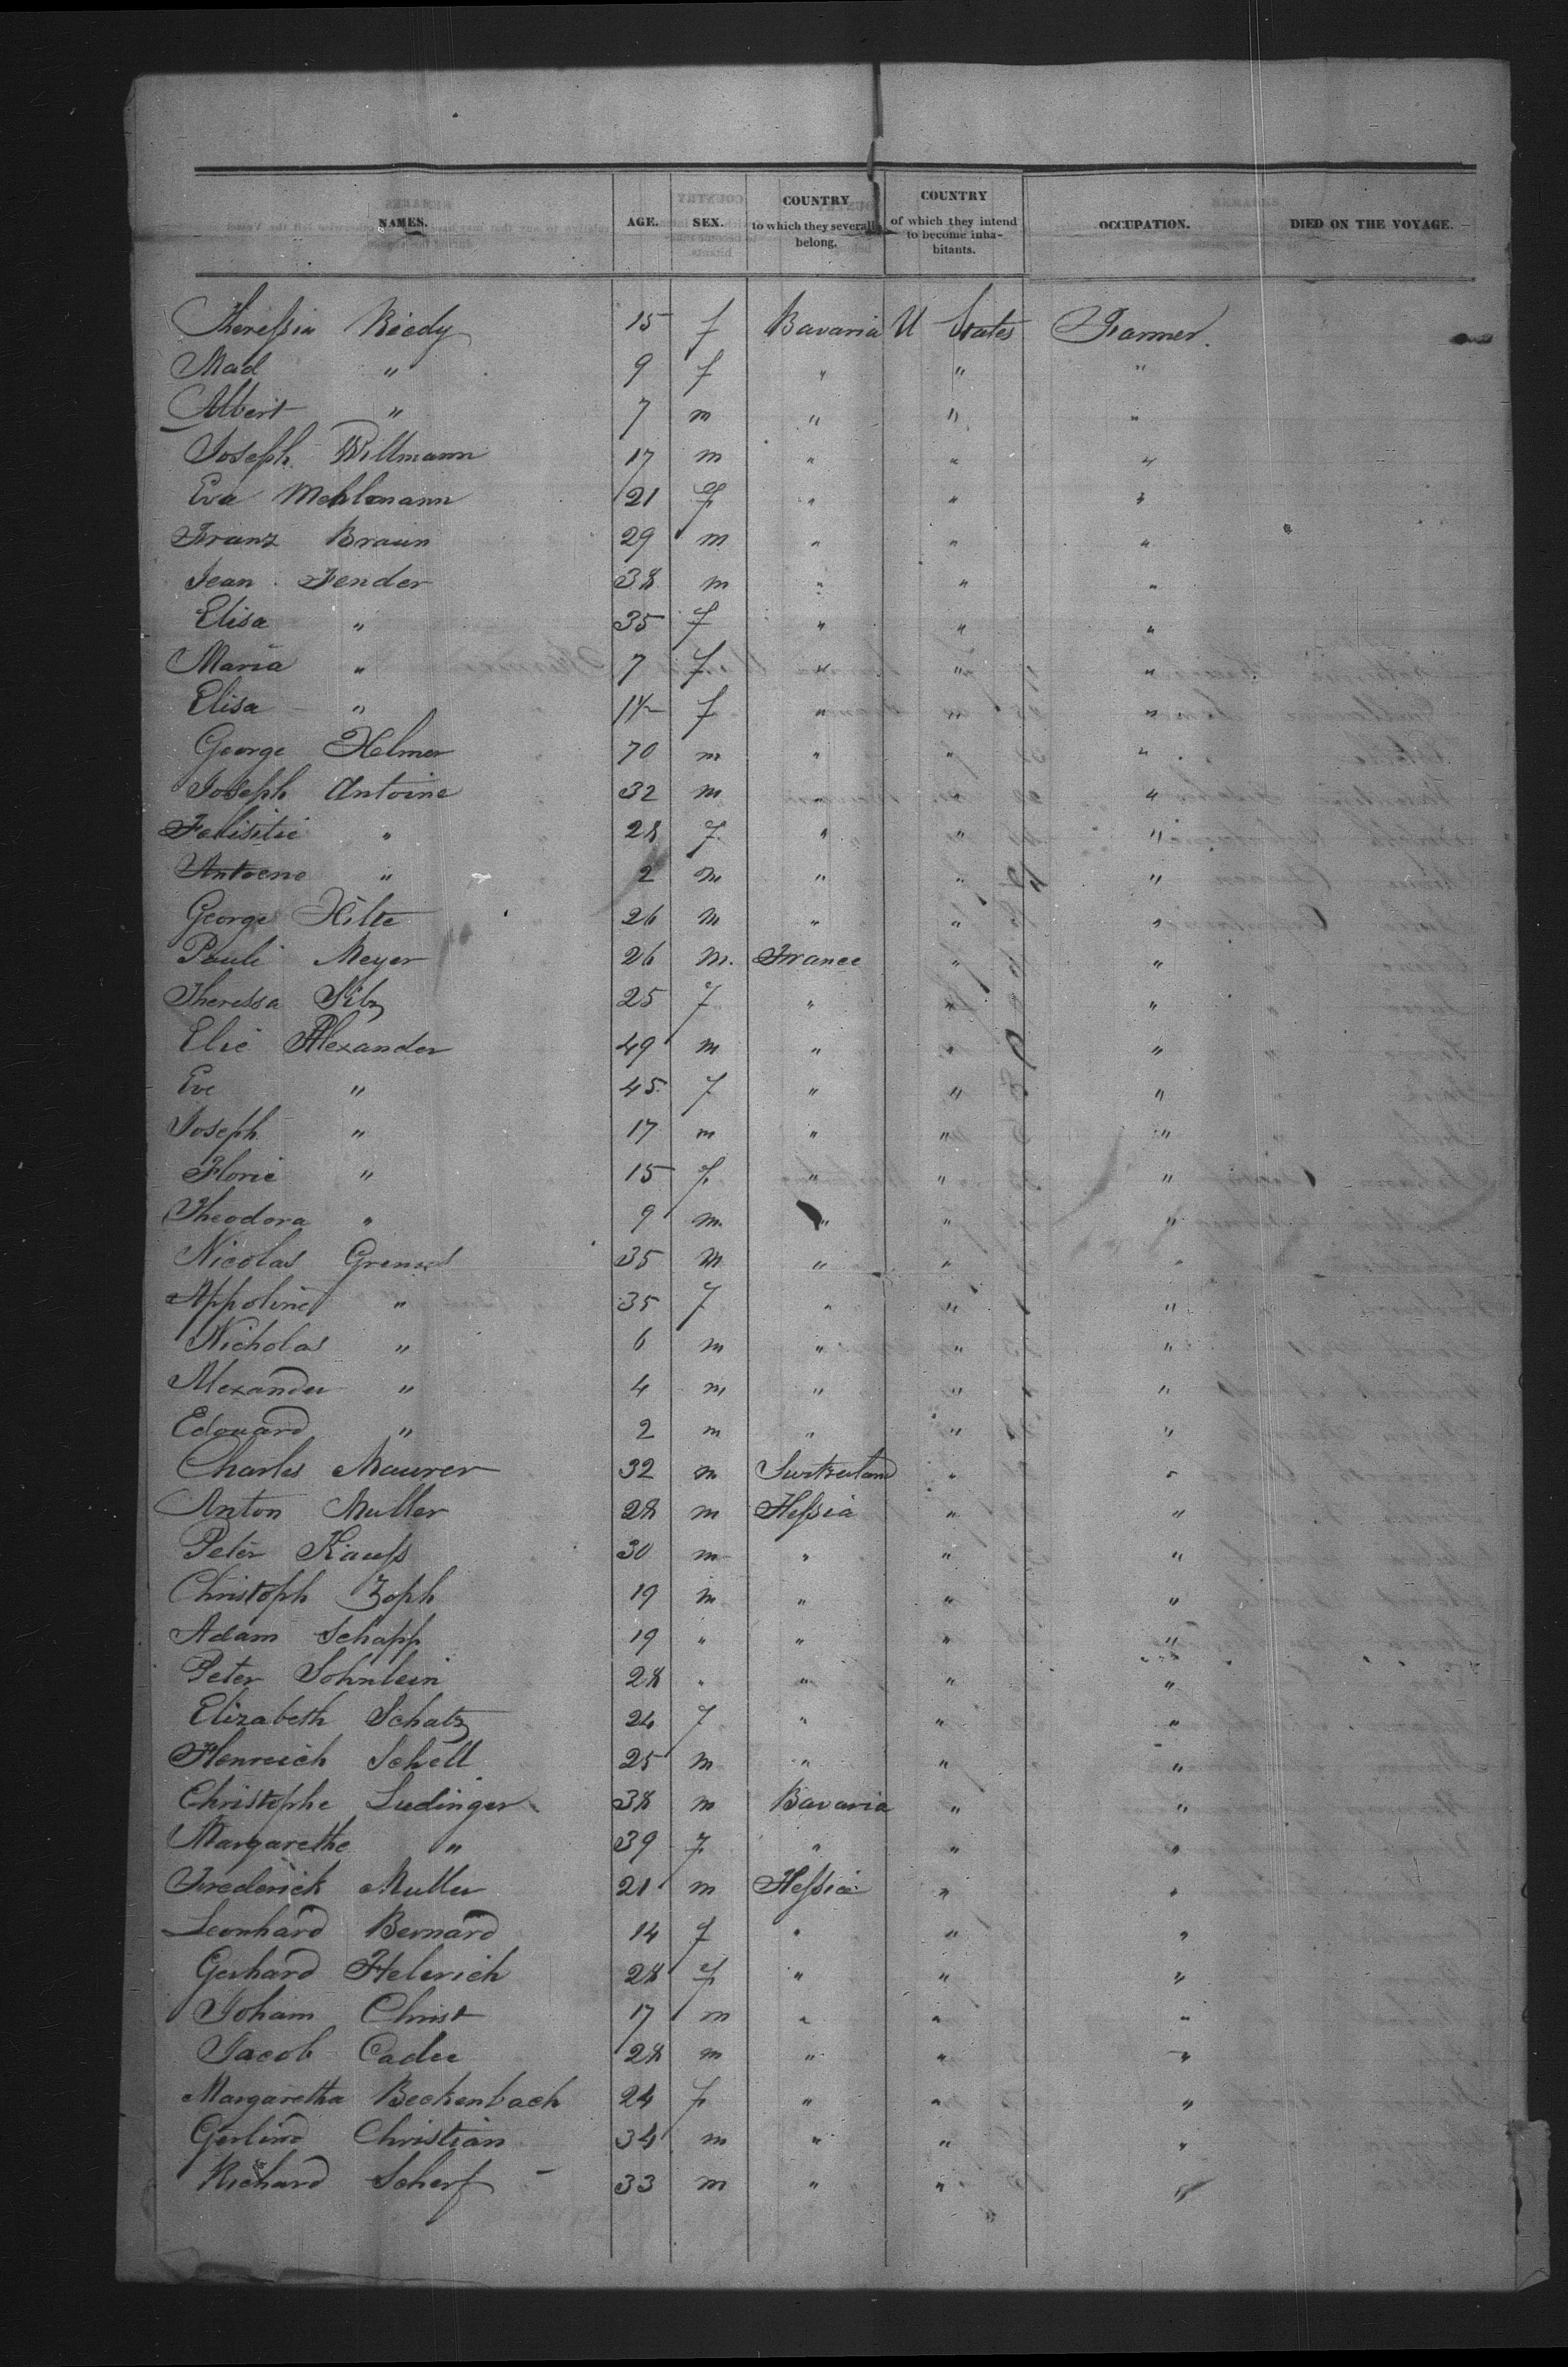 NAMES. AGE. SEX. COUNTRY to which they severally belong. COUNTRY of which they intend to become inhabitants. OCCUPATION. DIED ON THE VOYAGE.
Theressia Riedy 15 f Bavaria U States Farmer.
Mad " 9 f " " "
Albert " 7 m " " "
Joseph Willmann 17 m " " "
Eva Mehlmann 21 f " " "
Franz Braun 29 m " " "
Jean Fender 38 m " " "
Elisa " 35 f " " "
Maria " 7 f " " "
Elisa " f " " "
George Helmer 70 m " " "
Joseph Antoine 32 m " " "
Felisitie " 28 f " " "
Antoene " 2 m " " "
George Hilte 26 m " " "
Pauli Meyer 26 m. France " "
Theressa 25 f " " "
Elie Alexander 49 m " " "
Eve " 45 f " " "
Joseph " 17 m " " "
Florie " 15 f " " "
Theodora " 9 m " " "
Nicolas 35 m " " "
Appoline " 35 f " " "
Nicholas " 6 m " " "
Alexander " 4 m " " "
Edouard " 2 m " " "
Charles Maurer 32 m Switzerland " "
Anton Muller 28 m Hessia " "
Peter Kauss 30 m " " "
Christoph Zoph 19 m " " "
Adam Schapp 19 " " " "
Peter Sohnlein 28 " " " "
Elizabeth Schatz 24 f " " "
Henreich Schell 25 m " " "
Christophe Ludinger 38 m Bavaria " "
Margarethe " 39 f " " "
Frederick Muller 21 m Hessia " "
Leonhard Bernard 14 f " " "
Gerhard Helerich 28 f " " "
Joham Christ 17 m " " "
Jacob Cadee 28 m " " "
Margaretha Beckenbach 24 f " " "
Gerlind Christian 34 m " " "
Richard Scherf 33 m " " "